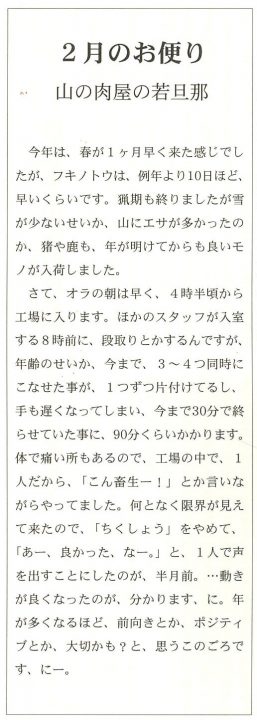 ２月のお便り
山の肉屋の若旦那
　今年は、春が１ヶ月早く来た感じでし
たが、フキノトウは、例年より10日ほど、
早いくらいです。猟期も終りましたが雪
が少ないせいか、山にエサが多かったの
か、猪や鹿も、年が明けてからも良いモ
ノが入荷しました。
　さて、オラの朝は早く、４時半頃から
工場に入ります。ほかのスタッフが入室
する８時前に、段取りとかするんですが、
年齢のせいか、今まで、３～４つ同時に
こなせた事が、１つずつ片付けてるし、
手も遅くなってしまい、今まで30分で終
らせていた事に、90分くらいかかります。
体で痛い所もあるので、工場の中で、１
人だから、「こん畜生ー！」とか言いな
がらやってました。何となく限界が見え
て来たので、「ちくしょう」をやめて、
「あー、良かった、なー。」と、１人で声
を出すことにしたのが、半月前。…動き
が良くなったのが、分かります、に。年
が多くなるほど、前向きとか、ポジティ
ブとか、大切かも？と、思うこのごろで
す、にー。